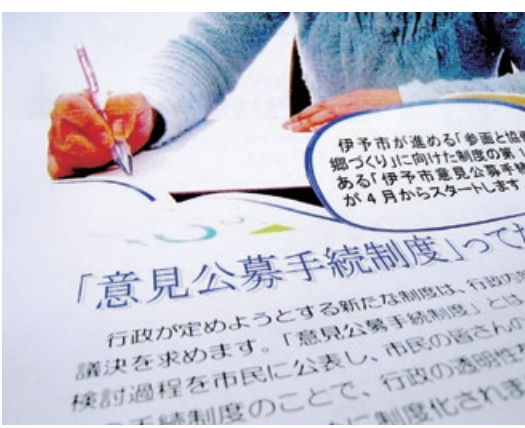 伊予市が進める「参画と協働
郷づくり」に向けた制度の第1
ある「伊予市意見公募手続
が4月からスタートします
「意見公募手続制度」って
行政が定めようとする新たな制度は、行政内
議決を求めます。「意見公募手続制度」とは、
検討過程を市民に公表し、市民の皆さんの
手続制度のことで、行政の透明性
に制度化されま